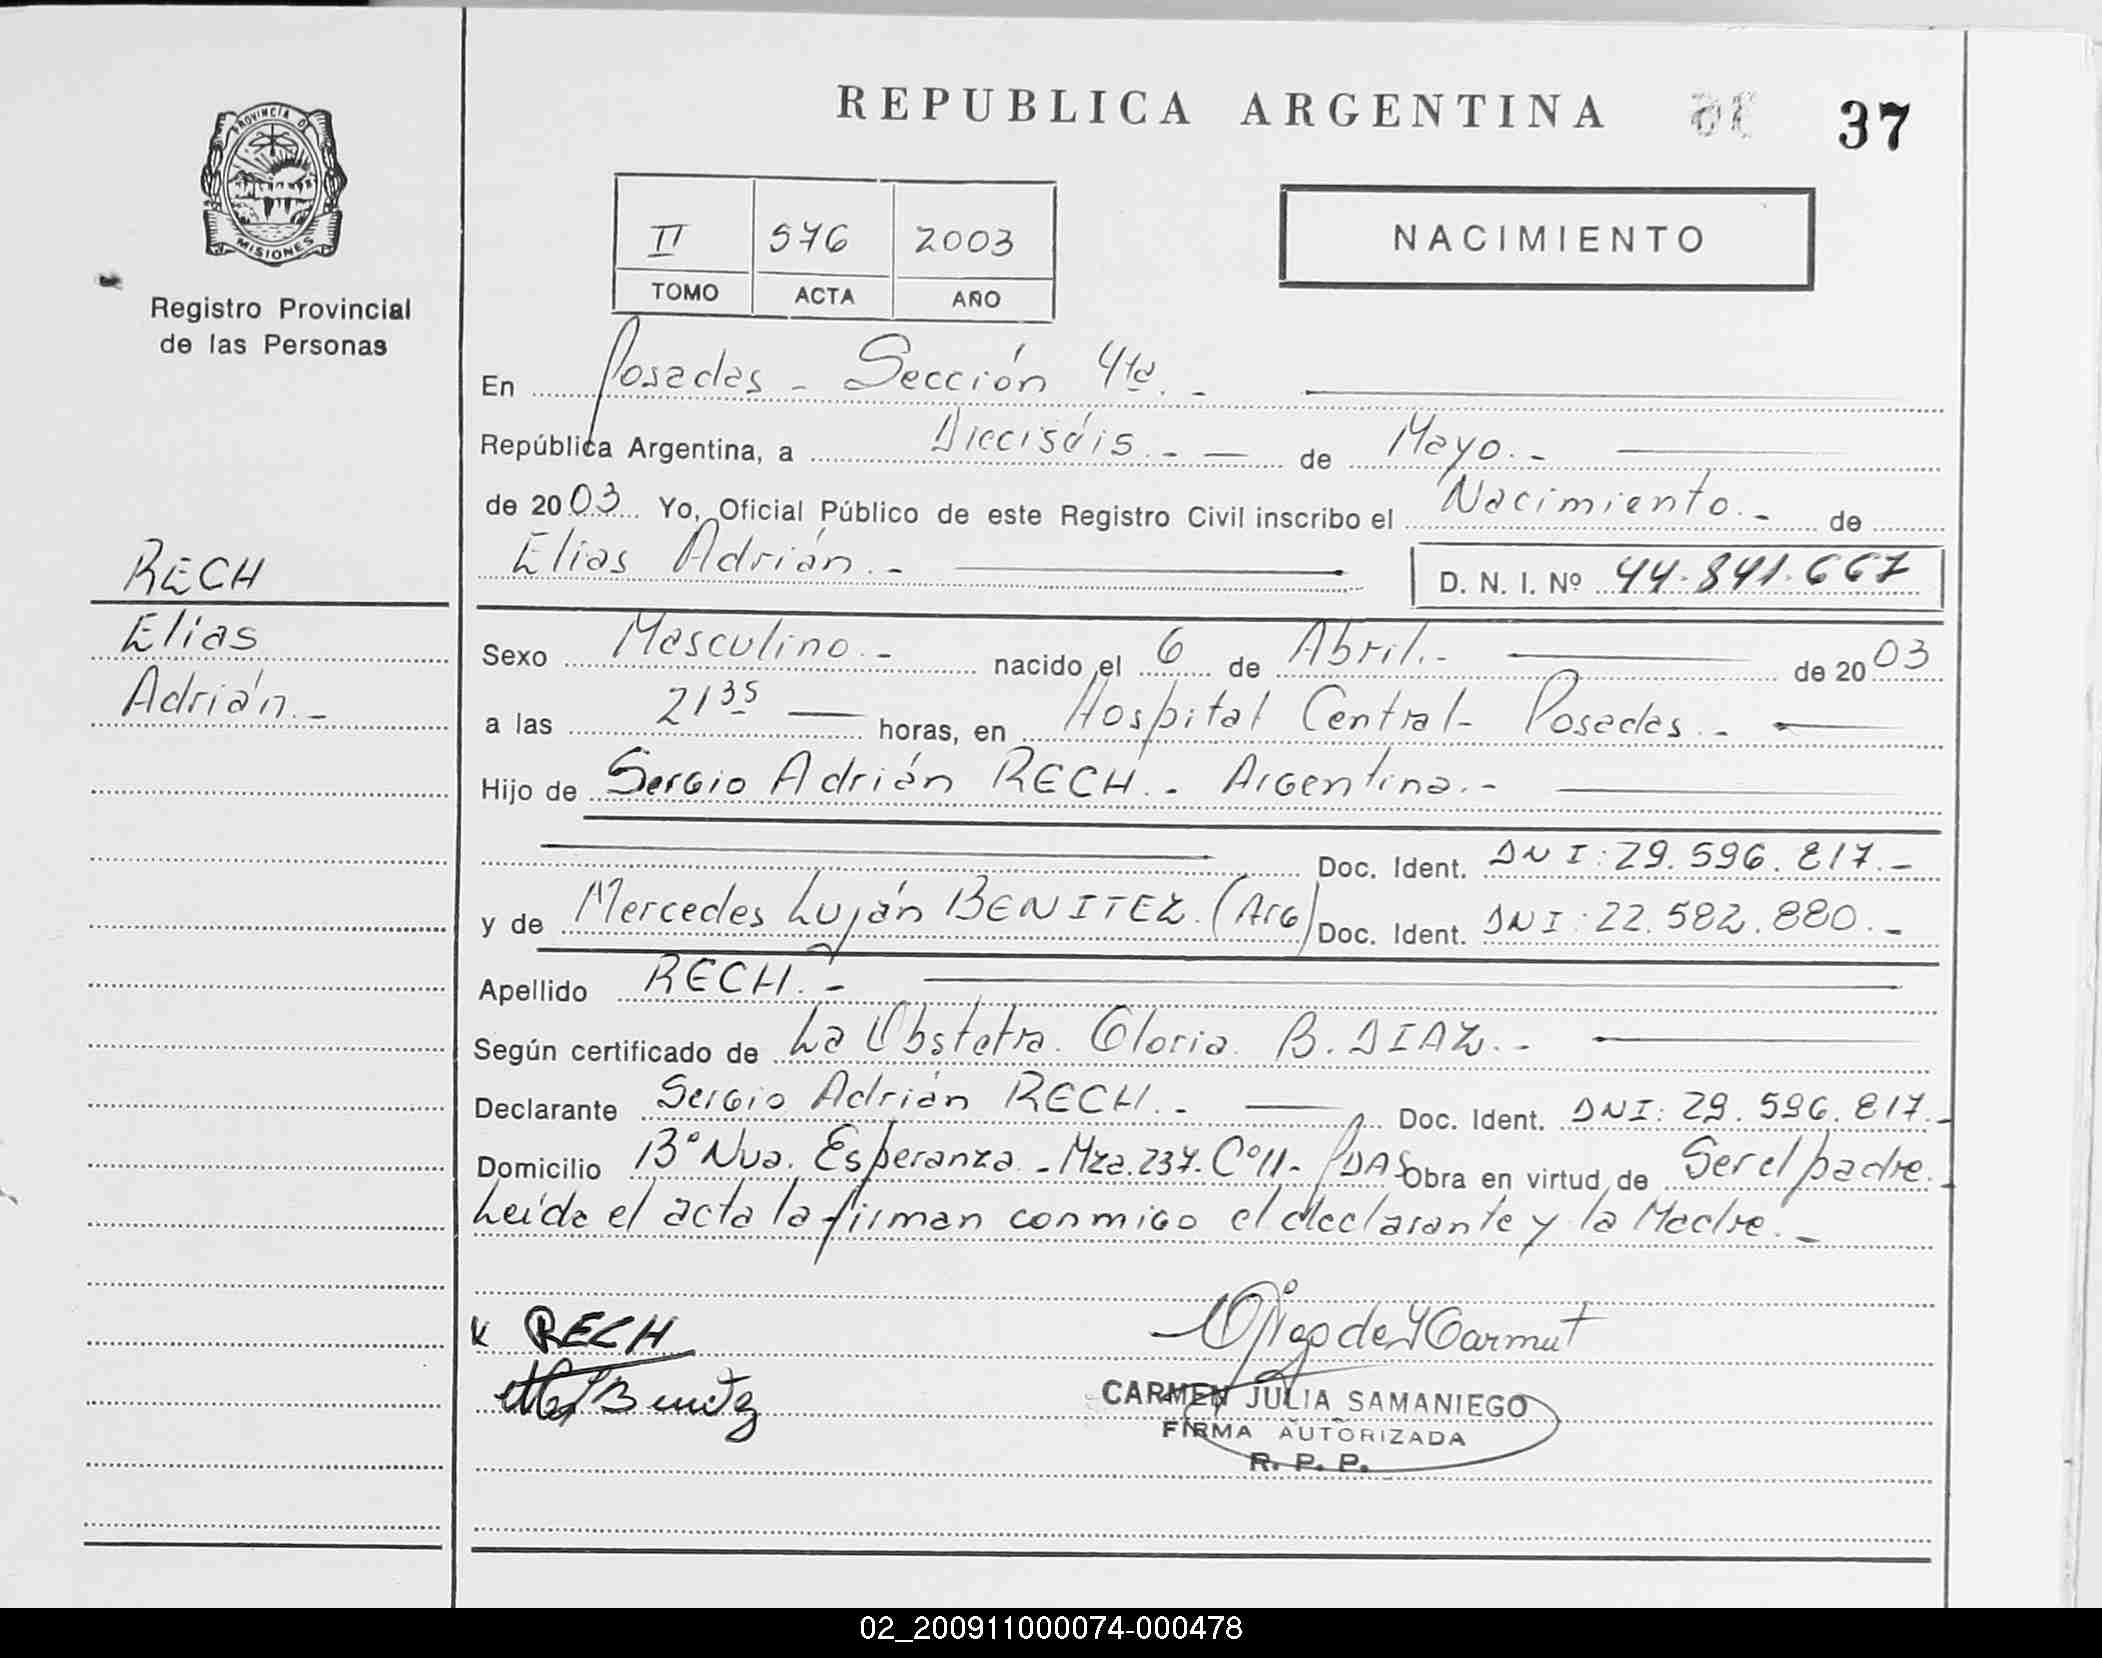 REPUBLICA ARGENTINA
37
PROVINCIA DE
MISIONES
Registro Provincial
de las Personas
II 576 2003
TOMO ACTA AÑO
NACIMIENTO
En Posadas - Sección 4ta. -
República Argentina, a Dieciséis. - de Mayo. -
de 2003 Yo, Oficial Público de este Registro Civil inscribo el Nacimiento. - de
Elias Adrián. - D. N. I. Nº 44.841.667
RECH
Elias
Adrián. -
Sexo Masculino. - nacido el 6 de Abril. - de 2003
a las 21 35 horas, en Hospital Central - Posadas. -
Hijo de Sergio Adrián RECH. - Argentina. -
Doc. Ident. DNI: 29.596.817. -
y de Mercedes Luján BENITEZ. (Arg) Doc. Ident. DNI: 22.582.880. -
Apellido RECH. -
Según certificado de La Obstetra. Gloria B. DIAZ. -
Declarante Sergio Adrián RECH. - Doc. Ident. DNI: 29.596.817. -
Domicilio Bº Nva. Esperanza - Mza. 237. Cº 11 - PDAS Obra en virtud de Ser el padre. -
Leída el acta la firman conmigo el declarante y la Madre. -
RECH
CARMEN JULIA SAMANIEGO
FIRMA AUTORIZADA
R. P. P.
02_200911000074-000478